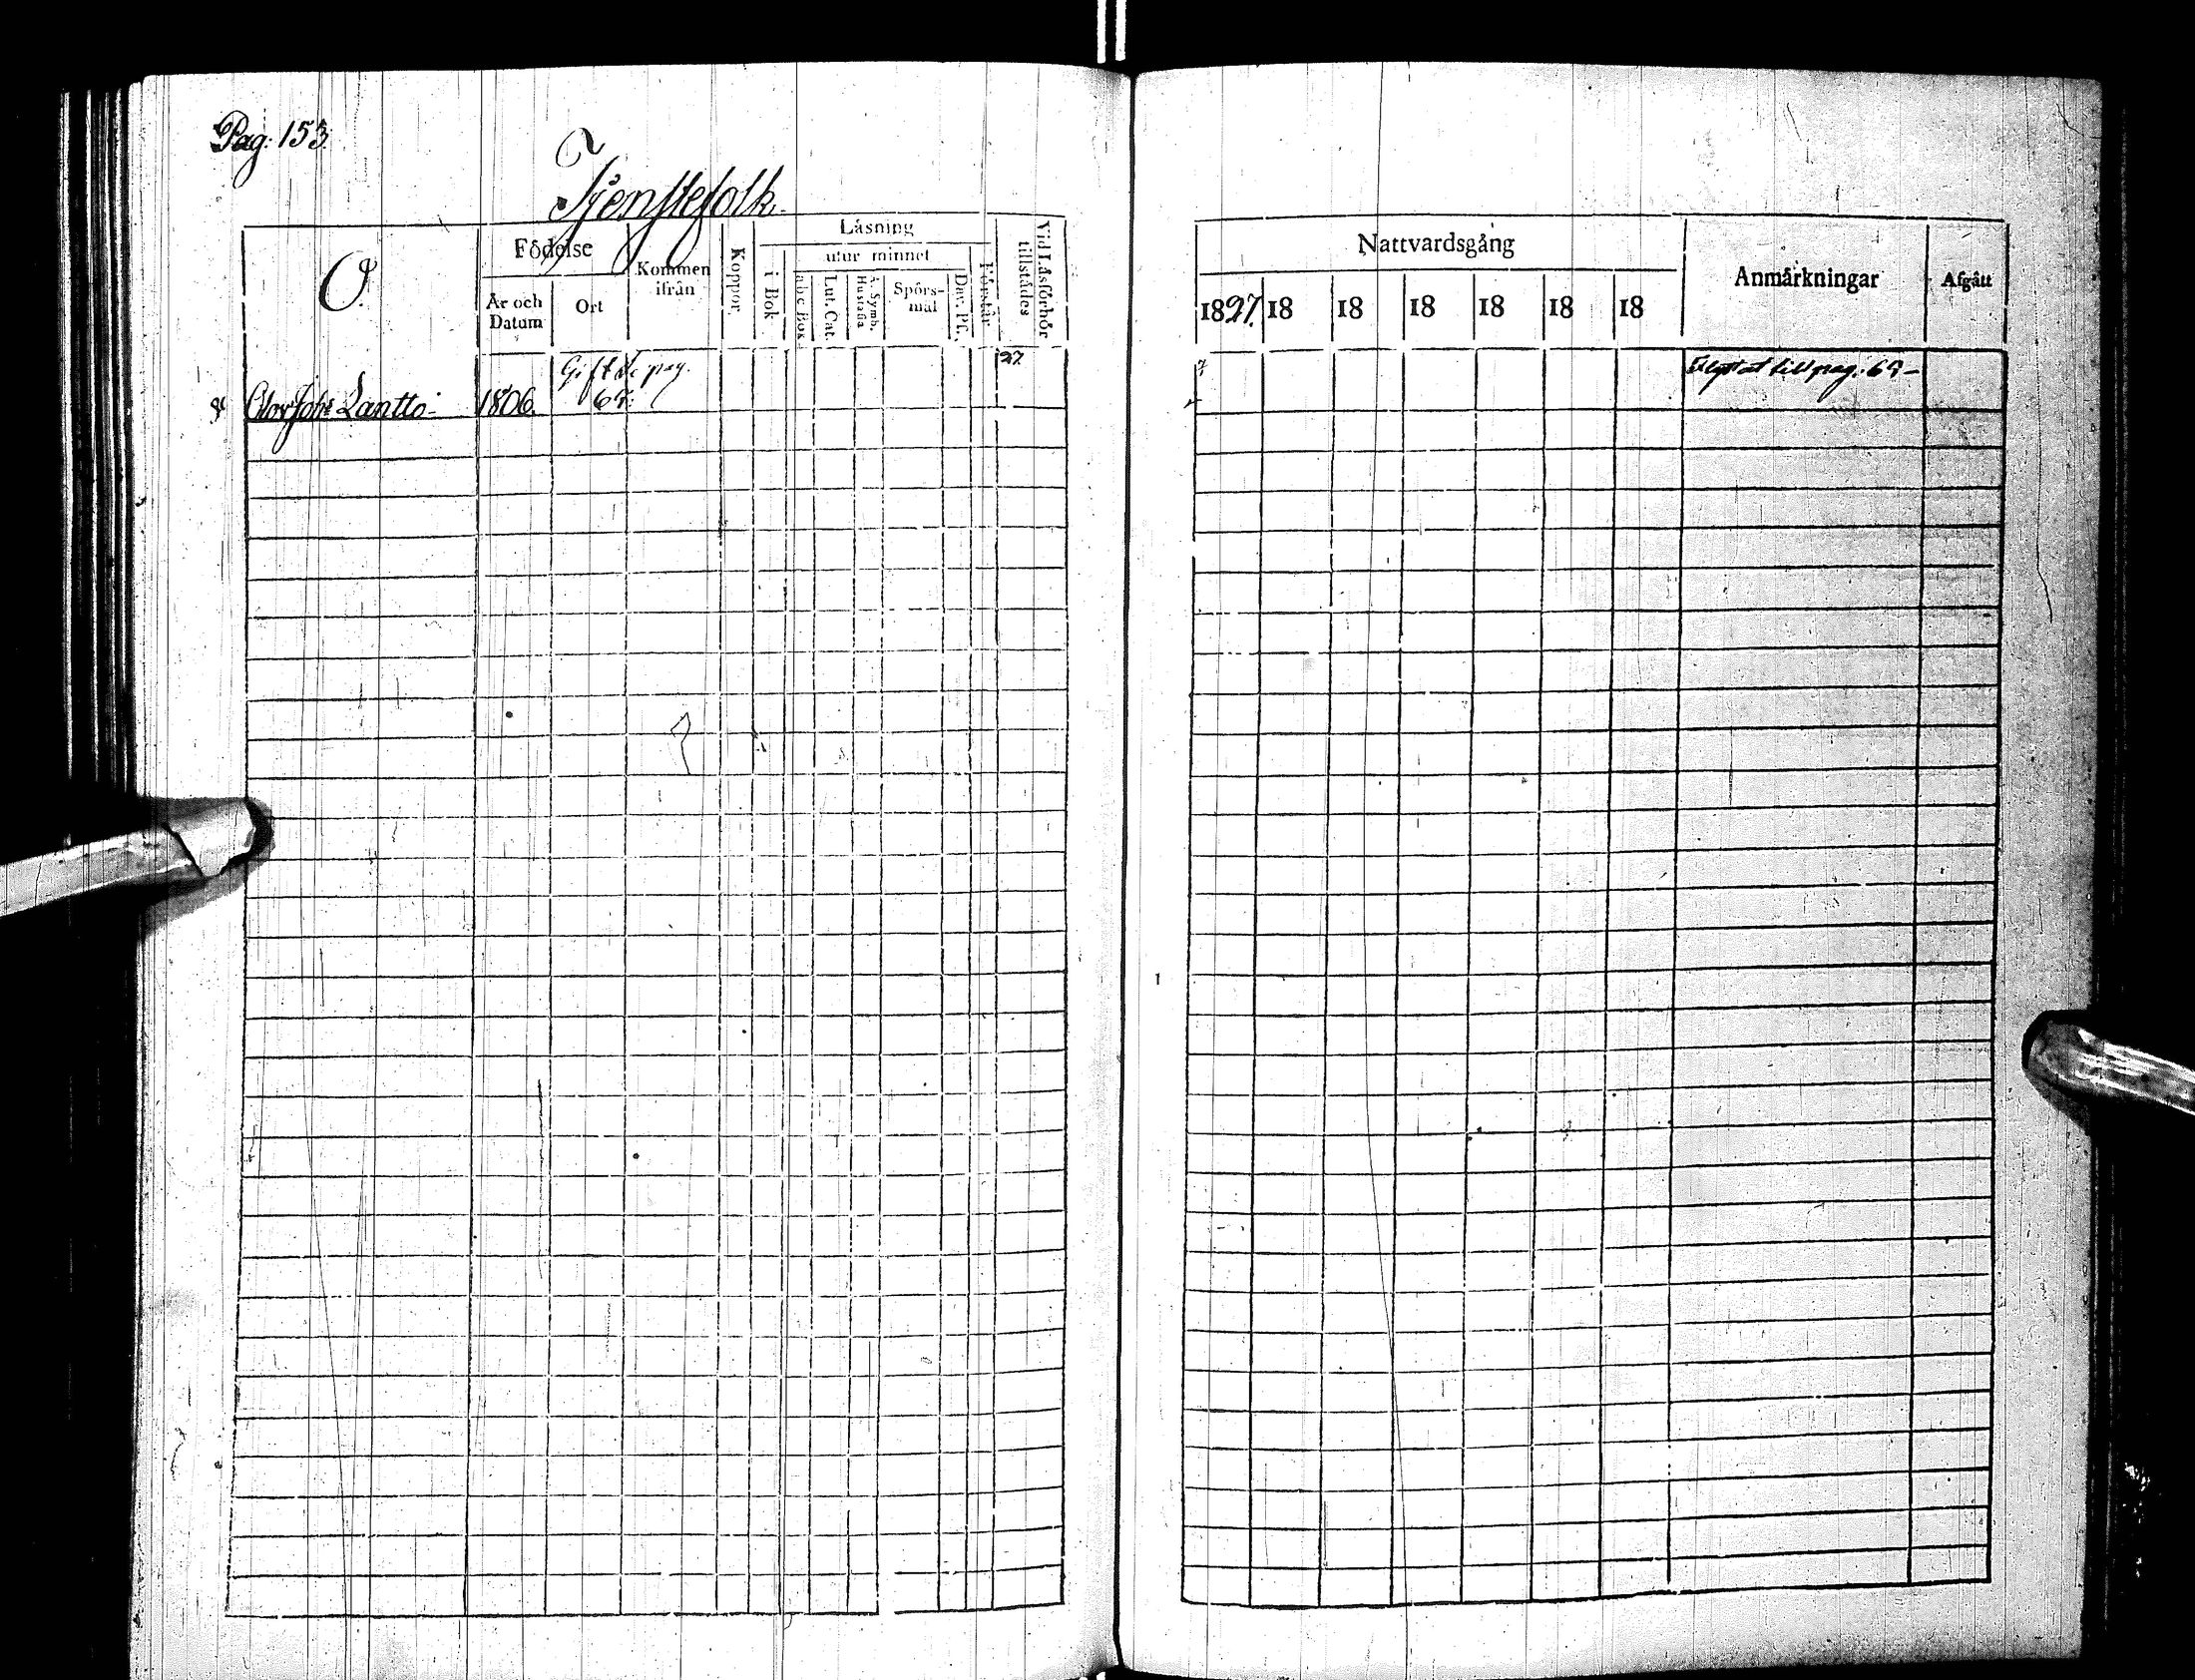 Pag: 153
Tjenstefolk
O.
Födelse
År och Datum
Ort
Kommen ifrån
Koppor
Läsning
i Bok
utur minnet
a b c Bok
Lut. Cat.
A. Symb. Hustafla
Spörsmål
Dav. Ps.
Förstår
Vid Läsförhör tillstådes
Nattvardsgång
1827. 18 18 18 18 18 18
Anmärkningar
Afgått
Gift de pag.
69.
Olov Johs Lantto 1806.
27
7
Flyttat till pag: 69-